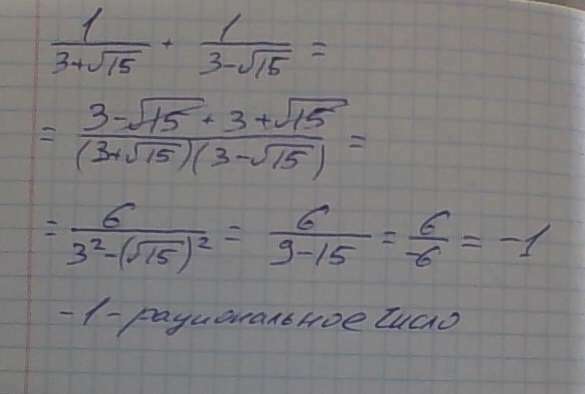 1/(3+√15) + 1/(3-√15) =
= (3-√15 + 3+√15)/((3+√15)(3-√15)) =
= 6/(3²-(√15)²) = 6/(9-15) = 6/-6 = -1
-1 - рациональное число